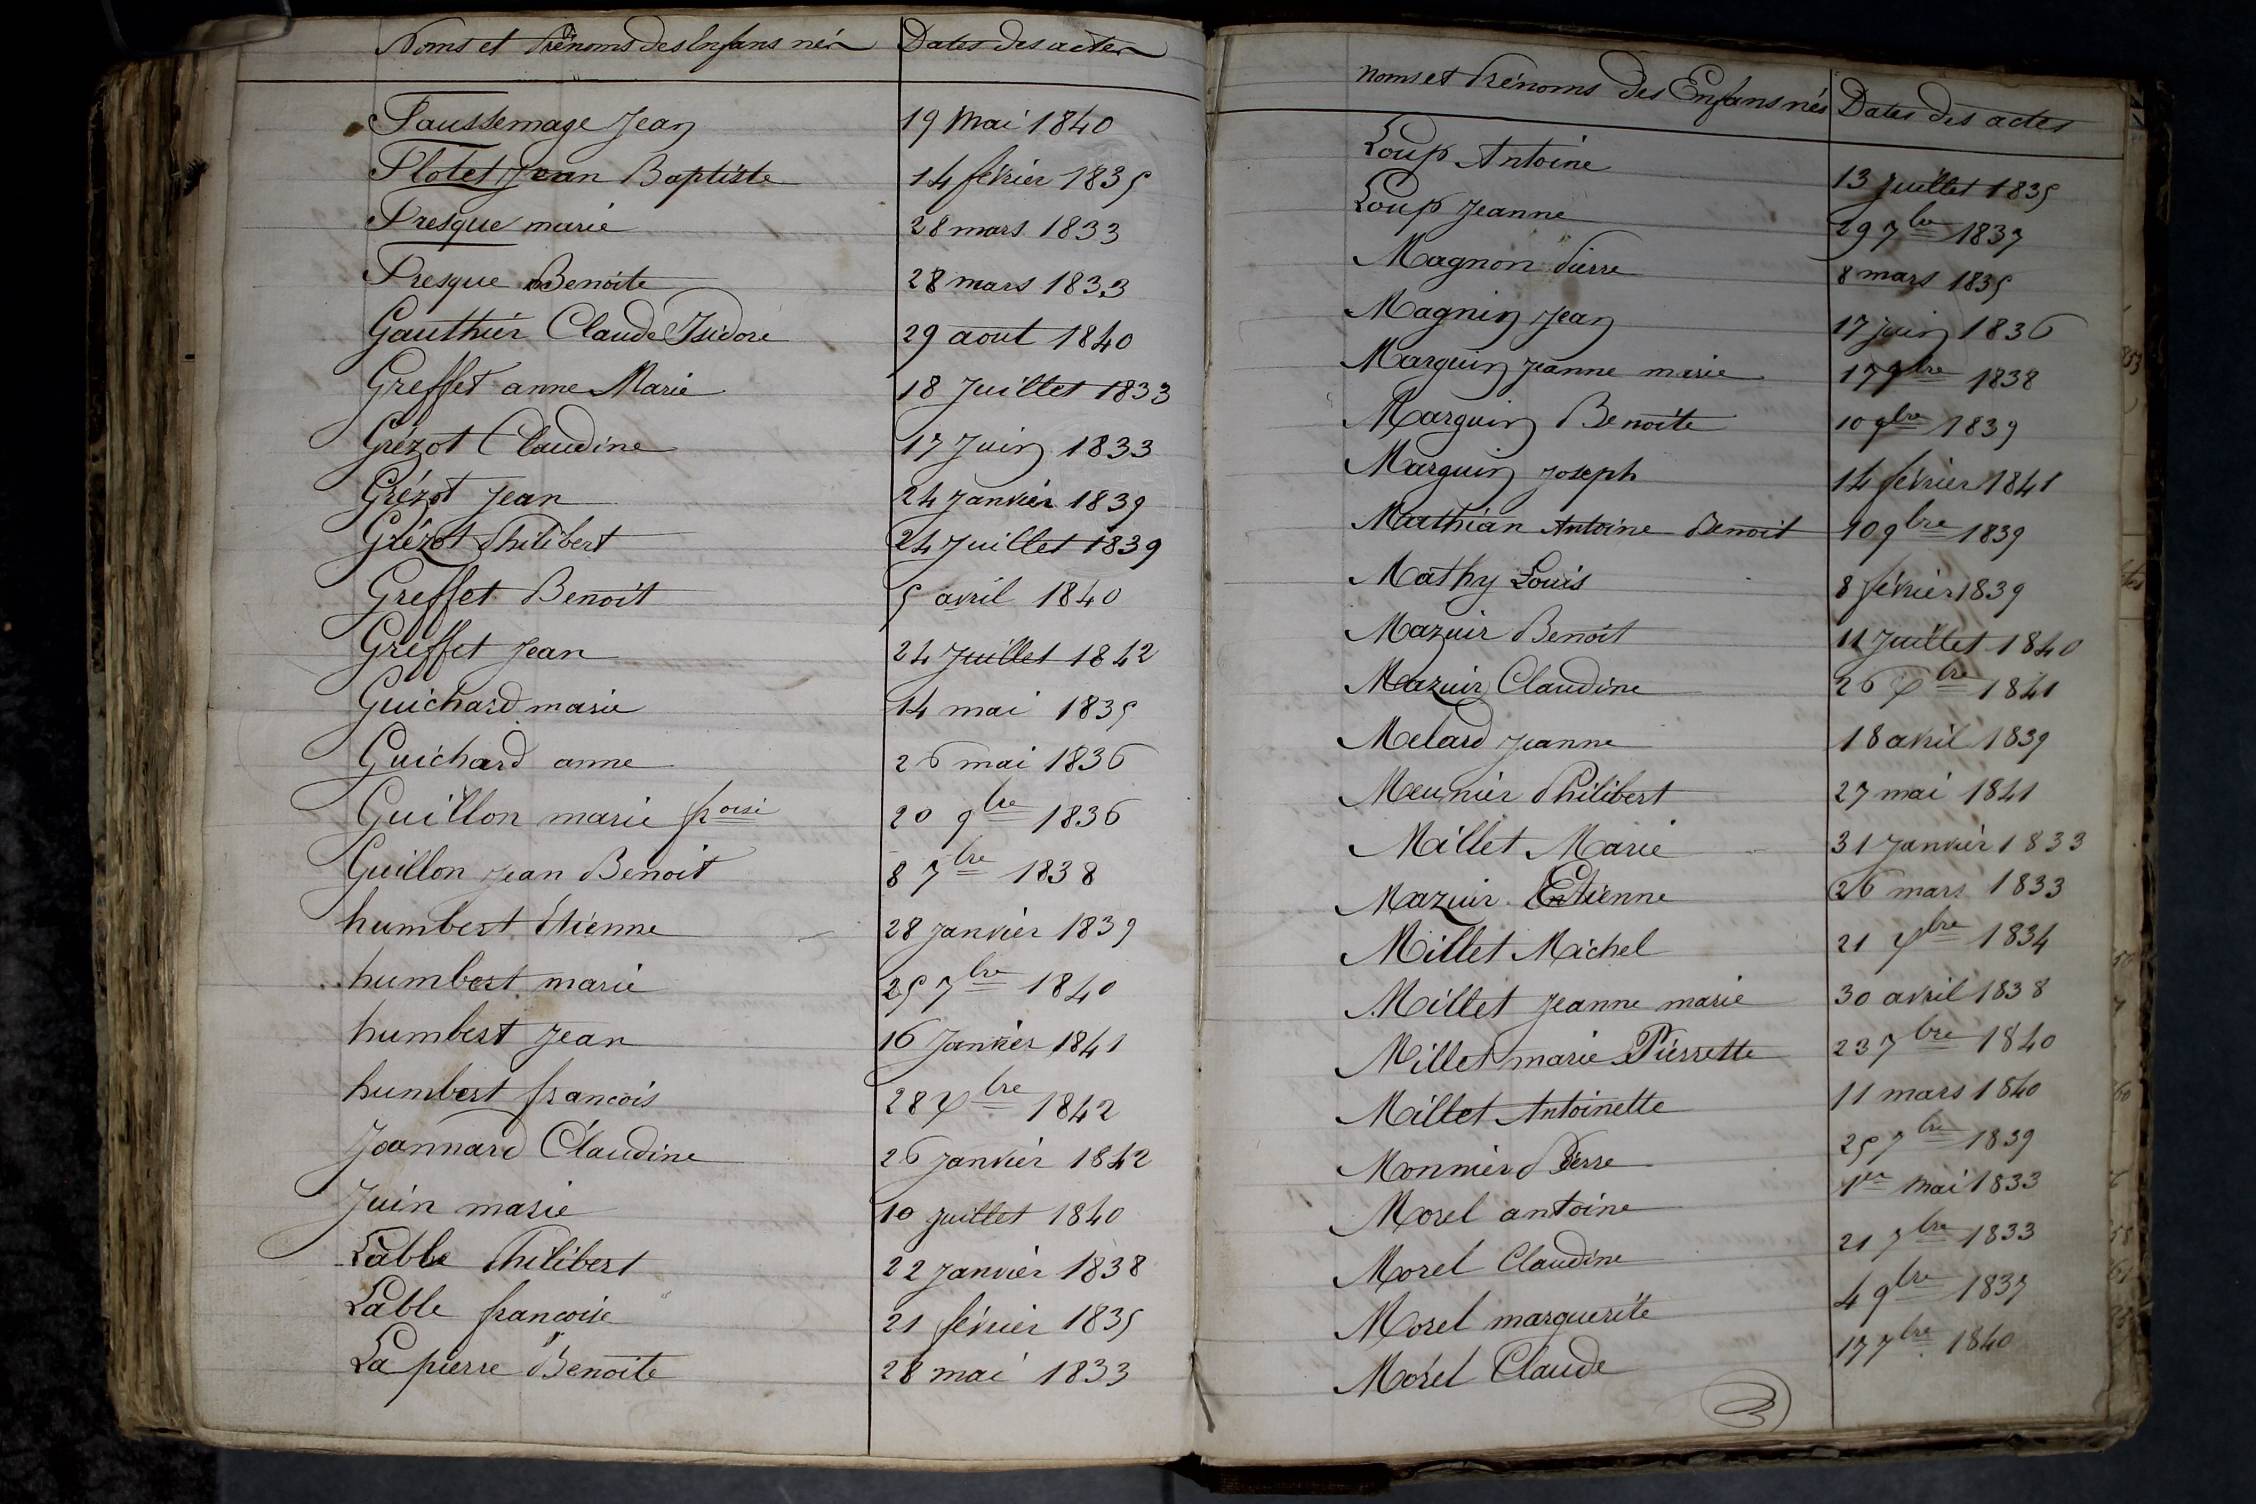 Noms et Prénoms des Enfans nés Dates des actes
Faussemage Jean 19 Mai 1840
Flotet Jean Baptiste 14 février 1835
Fresque marie 28 mars 1833
Fresque Benoite 28 mars 1833
Gauthier Claude Isidore 29 aout 1840
Greffet anne Marie 18 Juillet 1833
Grézot Claudine 17 Juin 1833
Grézot Jean 24 Janvier 1839
Grézot Philibert 24 Juillet 1839
Greffet Benoit 5 avril 1840
Greffet Jean 24 Juillet 1842
Guichard marie 14 mai 1835
Guichard anne 26 mai 1836
Guillon marie froise 20 9bre 1836
Guillon Jean Benoit 8 7bre 1838
humbert Etienne 28 janvier 1839
humbert marie 25 7bre 1840
humbert Jean 16 Janvier 1841
humbert francois 28 Xbre 1842
Joannard Claudine 26 janvier 1842
Juin marie 10 juillet 1840
Lable Philibert 22 janvier 1838
Lable francoise 21 février 1835
La pierre Benoite 28 mai 1833
noms et Prénoms des Enfans nés Dates des actes
Loup Antoine 13 juillet 1835
Loup Jeanne 29 7bre 1837
Magnon Pierre 8 mars 1835
Magnin Jean 17 juin 1836
Marguin Jeanne marie 17 9bre 1838
Marguin Benoite 10 9bre 1839
Marguin Joseph 14 février 1841
Mathian Antoine Benoit 10 9bre 1839
Mathy Louis 8 février 1839
Mazuir Benoit 11 Juillet 1840
Mazuir Claudine 26 Xbre 1841
Melard Jeanne 18 avril 1839
Meunier Philibert 27 mai 1841
Millet Marie 31 Janvier 1833
Mazuir Etienne 26 mars 1833
Millet Michel 21 Xbre 1834
Millet Jeanne marie 30 avril 1838
Millet marie Pierrette 23 7bre 1840
Millet Antoinette 11 mars 1840
Monnier Pierre 25 7bre 1839
Morel antoine 1er Mai 1833
Morel Claudine 21 7bre 1833
Morel marguerite 4 9bre 1837
Morel Claude 17 7bre 1840